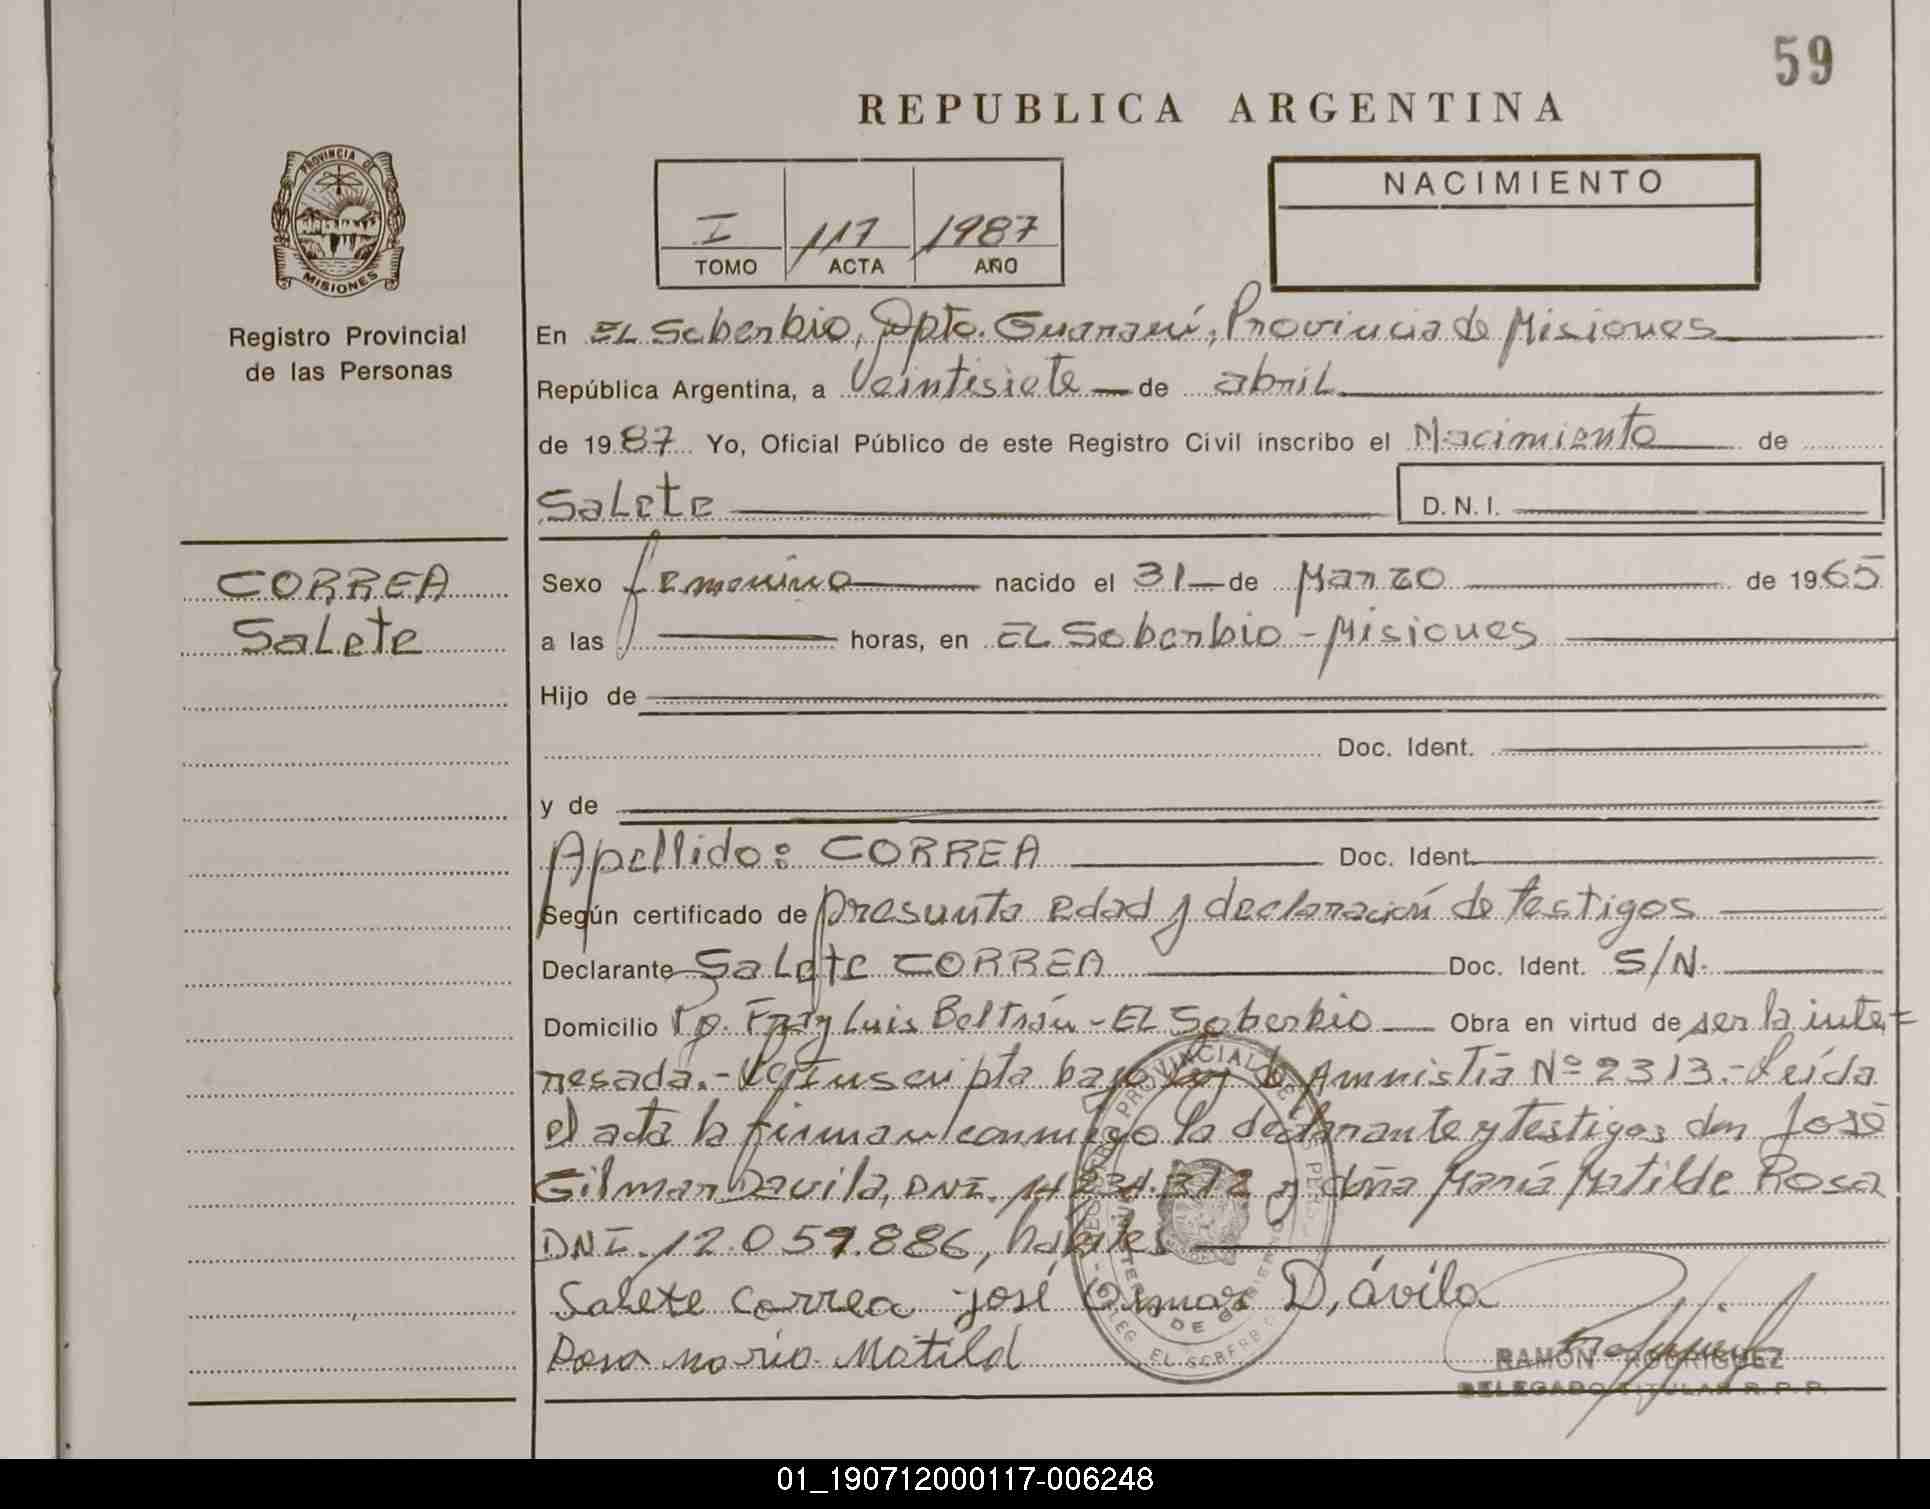 59
REPUBLICA ARGENTINA
PROVINCIA DE
MISIONES
Registro Provincial
de las Personas
I 117 1987
TOMO ACTA AÑO
NACIMIENTO
En EL Soberbio, Dpto. Guaraní, Provincia de Misiones
República Argentina, a Veintisiete de abril
de 1987 Yo, Oficial Público de este Registro Civil inscribo el Nacimiento de
Salete D.N.I.
CORREA
Salete
Sexo femenino nacido el 31 de Marzo de 1965
a las horas, en EL Soberbio - Misiones
Hijo de
Doc. Ident.
y de
Apellido: CORREA Doc. Ident.
Según certificado de presunta edad y declaración de testigos
Declarante Salete CORREA Doc. Ident. S/N.
Domicilio Fray Luis Beltrán - EL Soberbio Obra en virtud de ser la inte=
resada.- inscripta bajo ley de Amnistía Nº 2313.- Leída
el acta la firman conmigo la declarante y testigos don José
Gilmar Davila, DNI. y doña María Matilde Rosa
DNI. 12.059.886, hábiles
Salete Correa José D, ávila
Rosa maria Matild
RAMÓN RODRIGUEZ
DELEGADO TITULAR R. P. P.
01_190712000117-006248